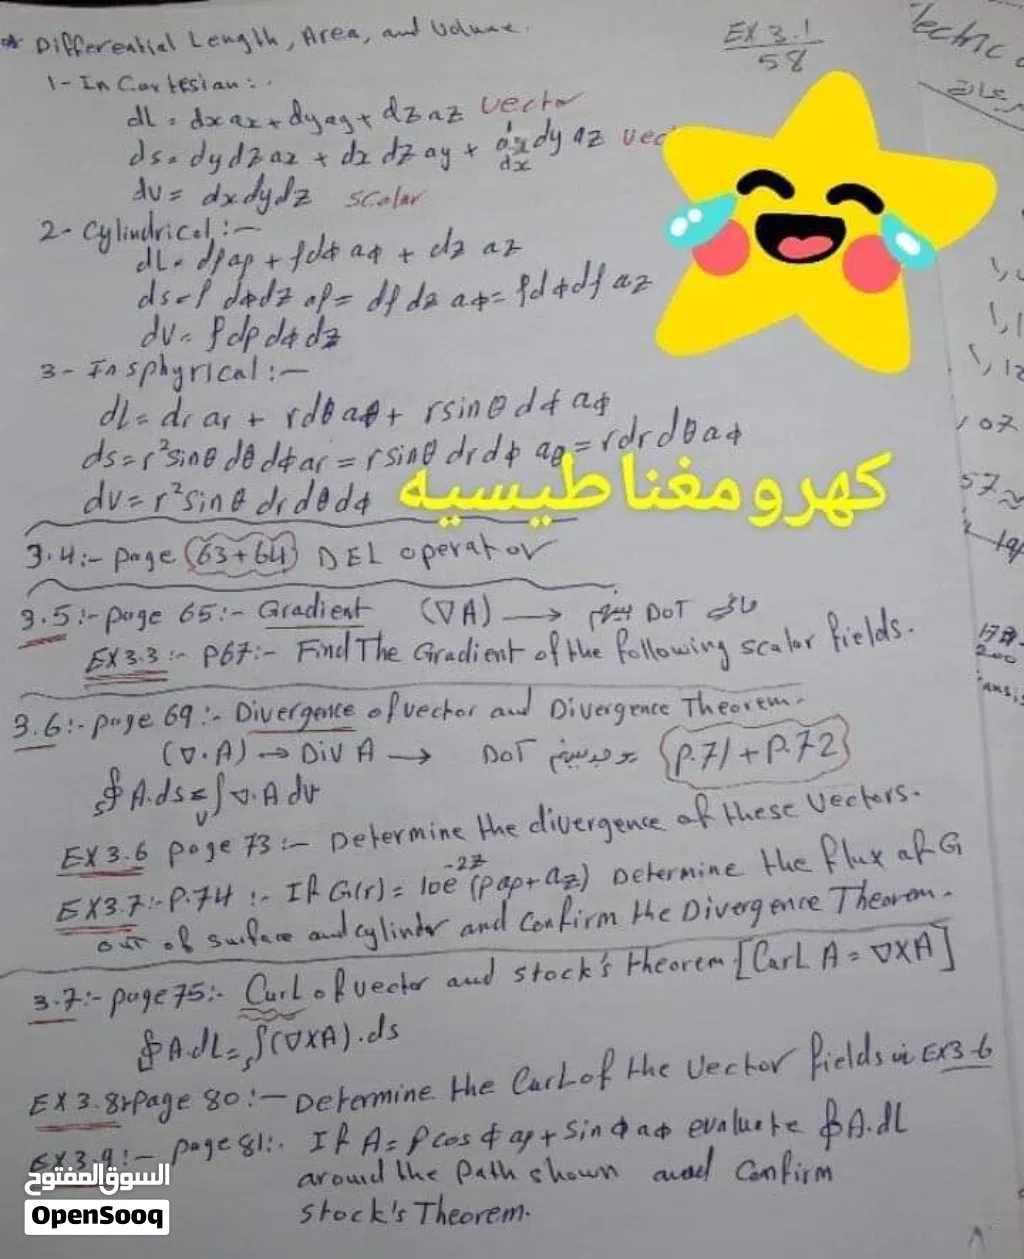 * Differential Length, Area, and Volume.
EX 3.1
58
1- In Cartesian:-
dL = dx ax + dy ay + dz az vector
ds = dy dz ax + dx dz ay + dx dy az vec
dx
dv = dx dy dz scalar
2- Cylindrical:-
dL = dρ aρ + ρdφ aφ + dz az
ds = ρ dφdz aρ = dρ dz aφ = ρdφdρ az
dv = ρ dρ dφ dz
3- In sphyrical:-
dL = dr ar + rdθ aθ + rsinθ dφ aφ
ds = r² sinθ dθ dφ ar = r sinθ dr dφ aθ = rdr dθ aφ
dv = r² sinθ dr dθ dφ
كهرومغناطيسيه
3.4:- page (63+64) DEL operator
3.5:- page 65:- Gradient (∇A) → DOT
EX 3.3:- P67:- Find The Gradient of the following scalar fields.
3.6:- page 69:- Divergence of vector and Divergence Theorem.
(∇.A) → Div A → DOT (P.71 + P.72)
∮s A.ds = ∫v ∇.A dv
EX 3.6 page 73:- Determine the divergence of these vectors.
EX3.7:- P.74:- If G(r) = 10e^-2z (ρaρ + az) Determine the flux of G
out of surface and cylinder and Confirm the Divergence Theorem.
3.7:- page 75:- Curl of vector and stock's theorem [Curl A = ∇XA]
∮A.dL = ∫s(∇XA).ds
EX 3.8:- page 80:- Determine the Curl of the vector fields in EX3-6
EX 3.9:- page 81:- If A = ρ cos φ aρ + Sin φ aφ evaluate ∮A.dL
around the Path shown and Confirm
Stock's Theorem.
السوق المفتوح
OpenSooq